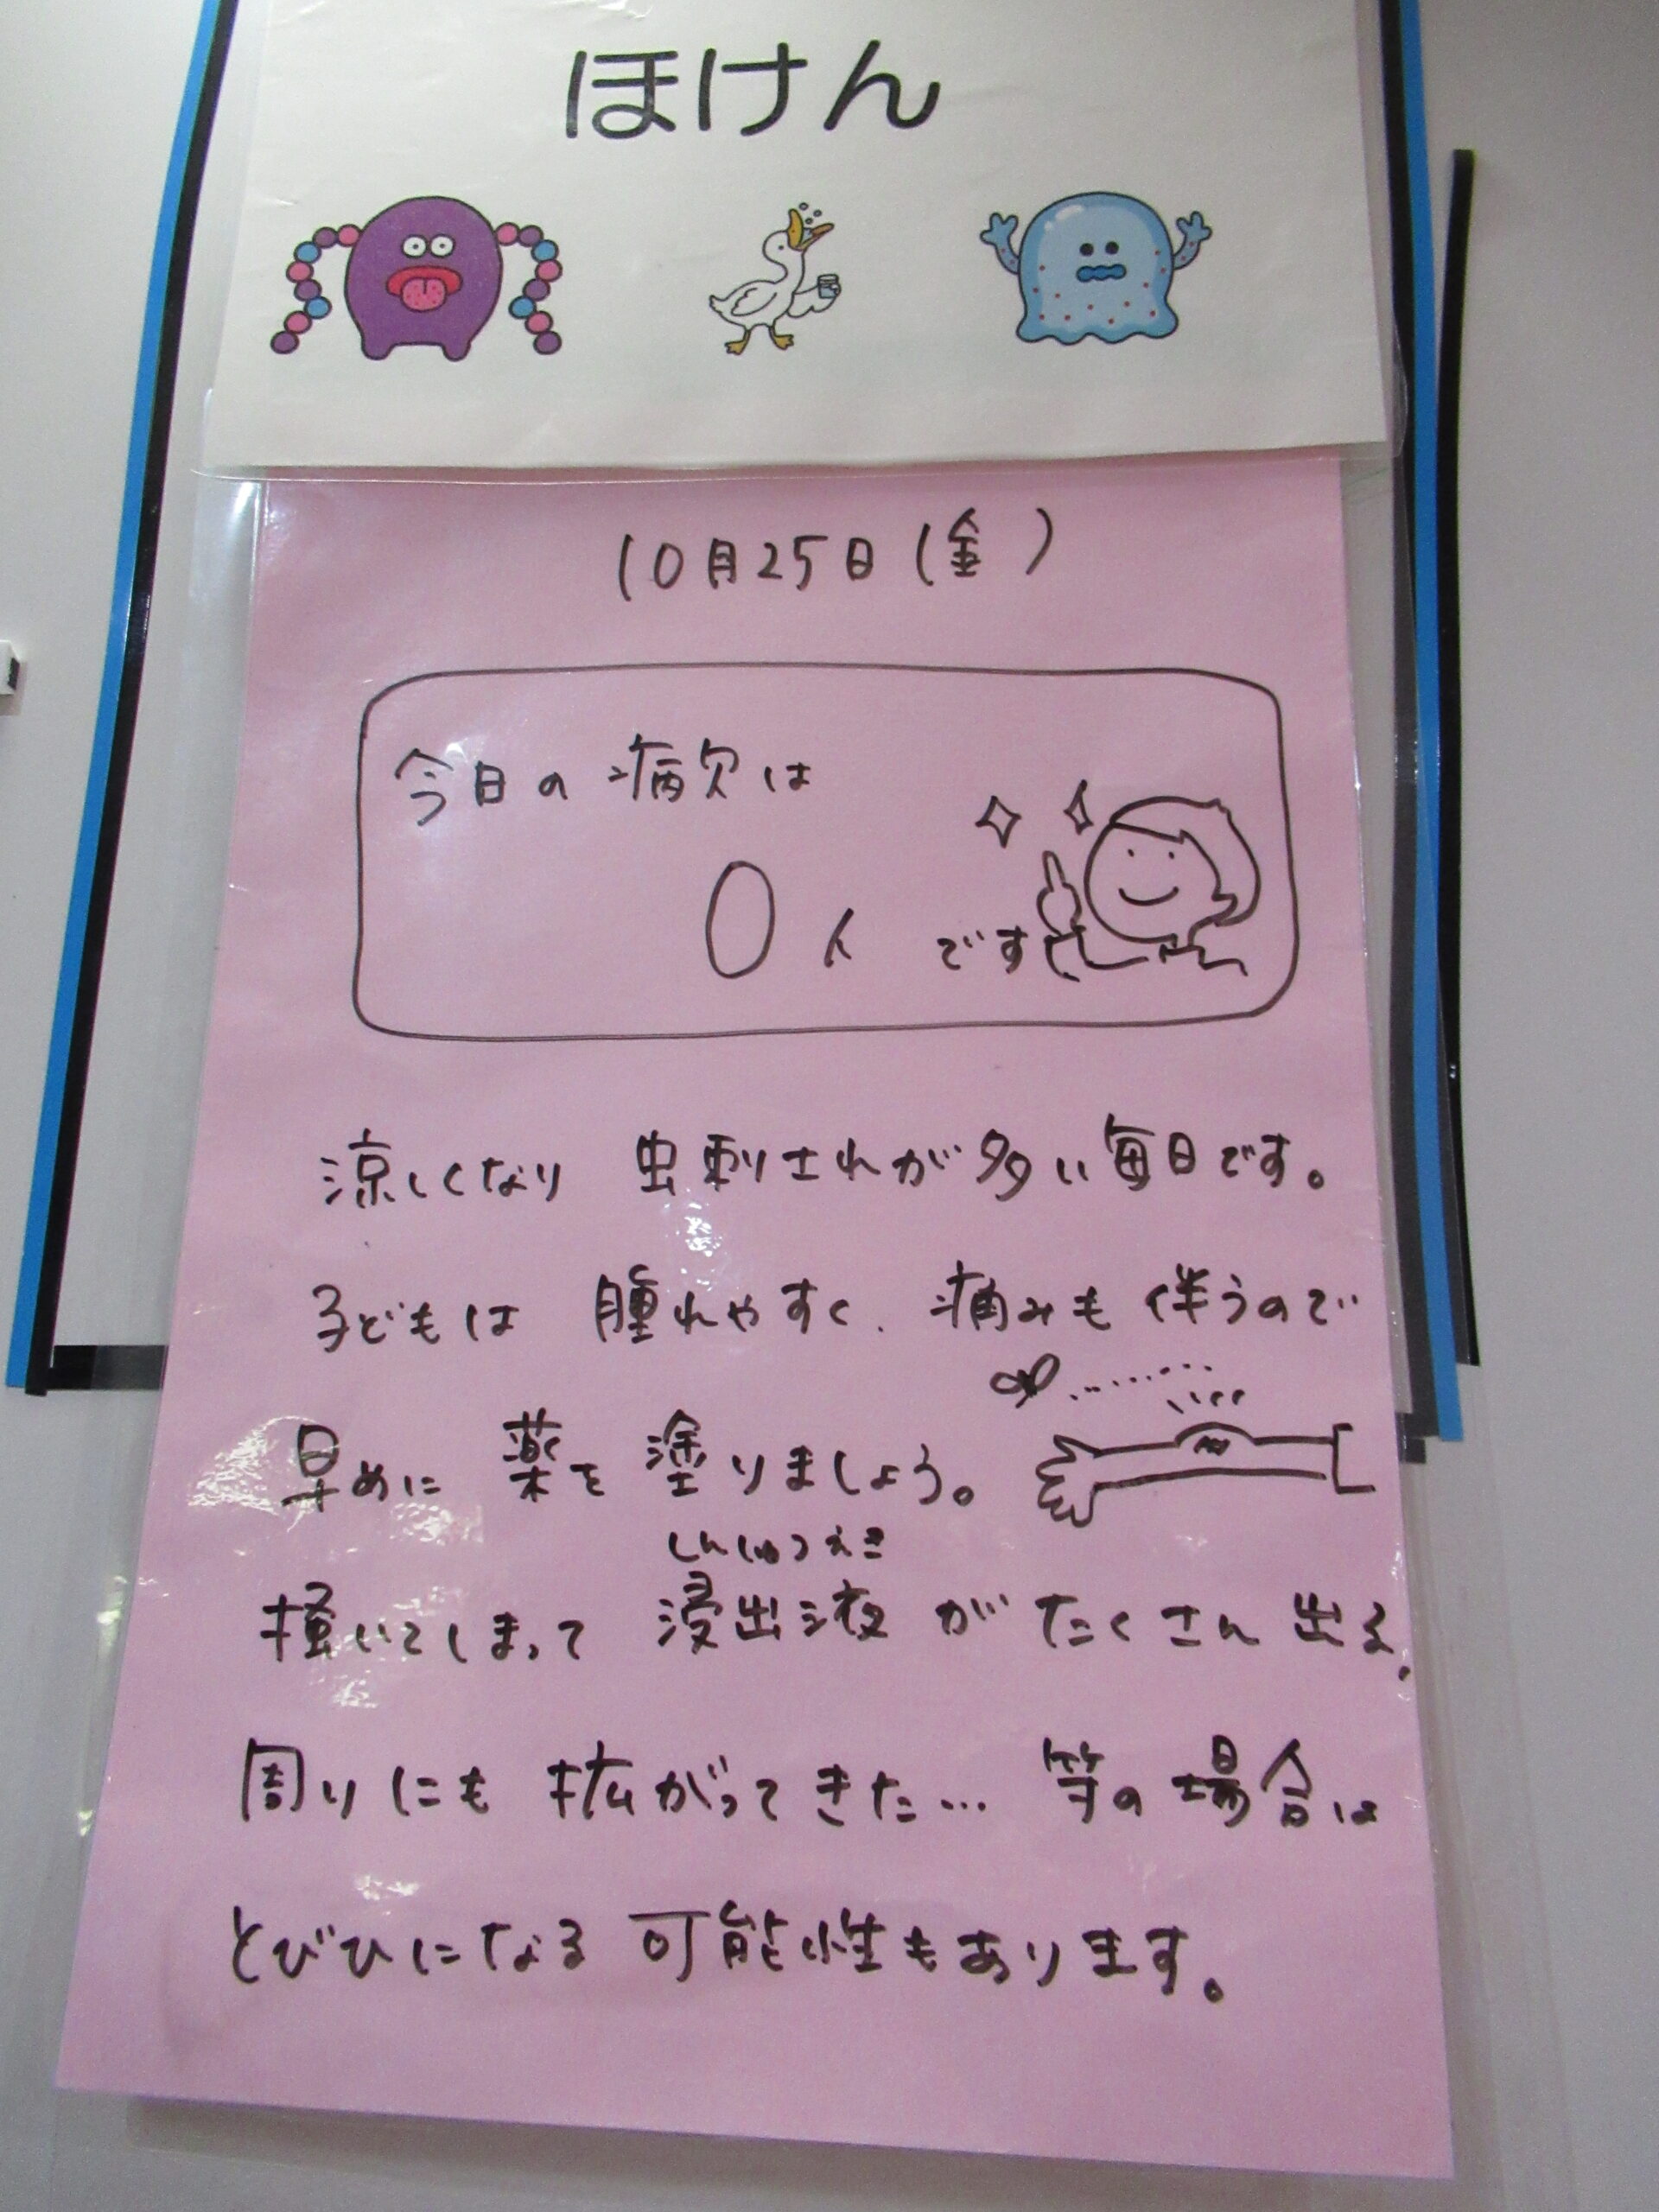 ほけん
10月25日(金)
今日の病欠は
0人 です
涼しくなり 虫刺されが多い毎日です。
子どもは 腫れやすく、痛みも 伴うので
早めに 薬を 塗りましょう。
しんしゅつえき
掻いてしまって 浸出液 が たくさん 出る、
周りにも 拡がってきた… 等の 場合は
とびひになる 可能性もあります。